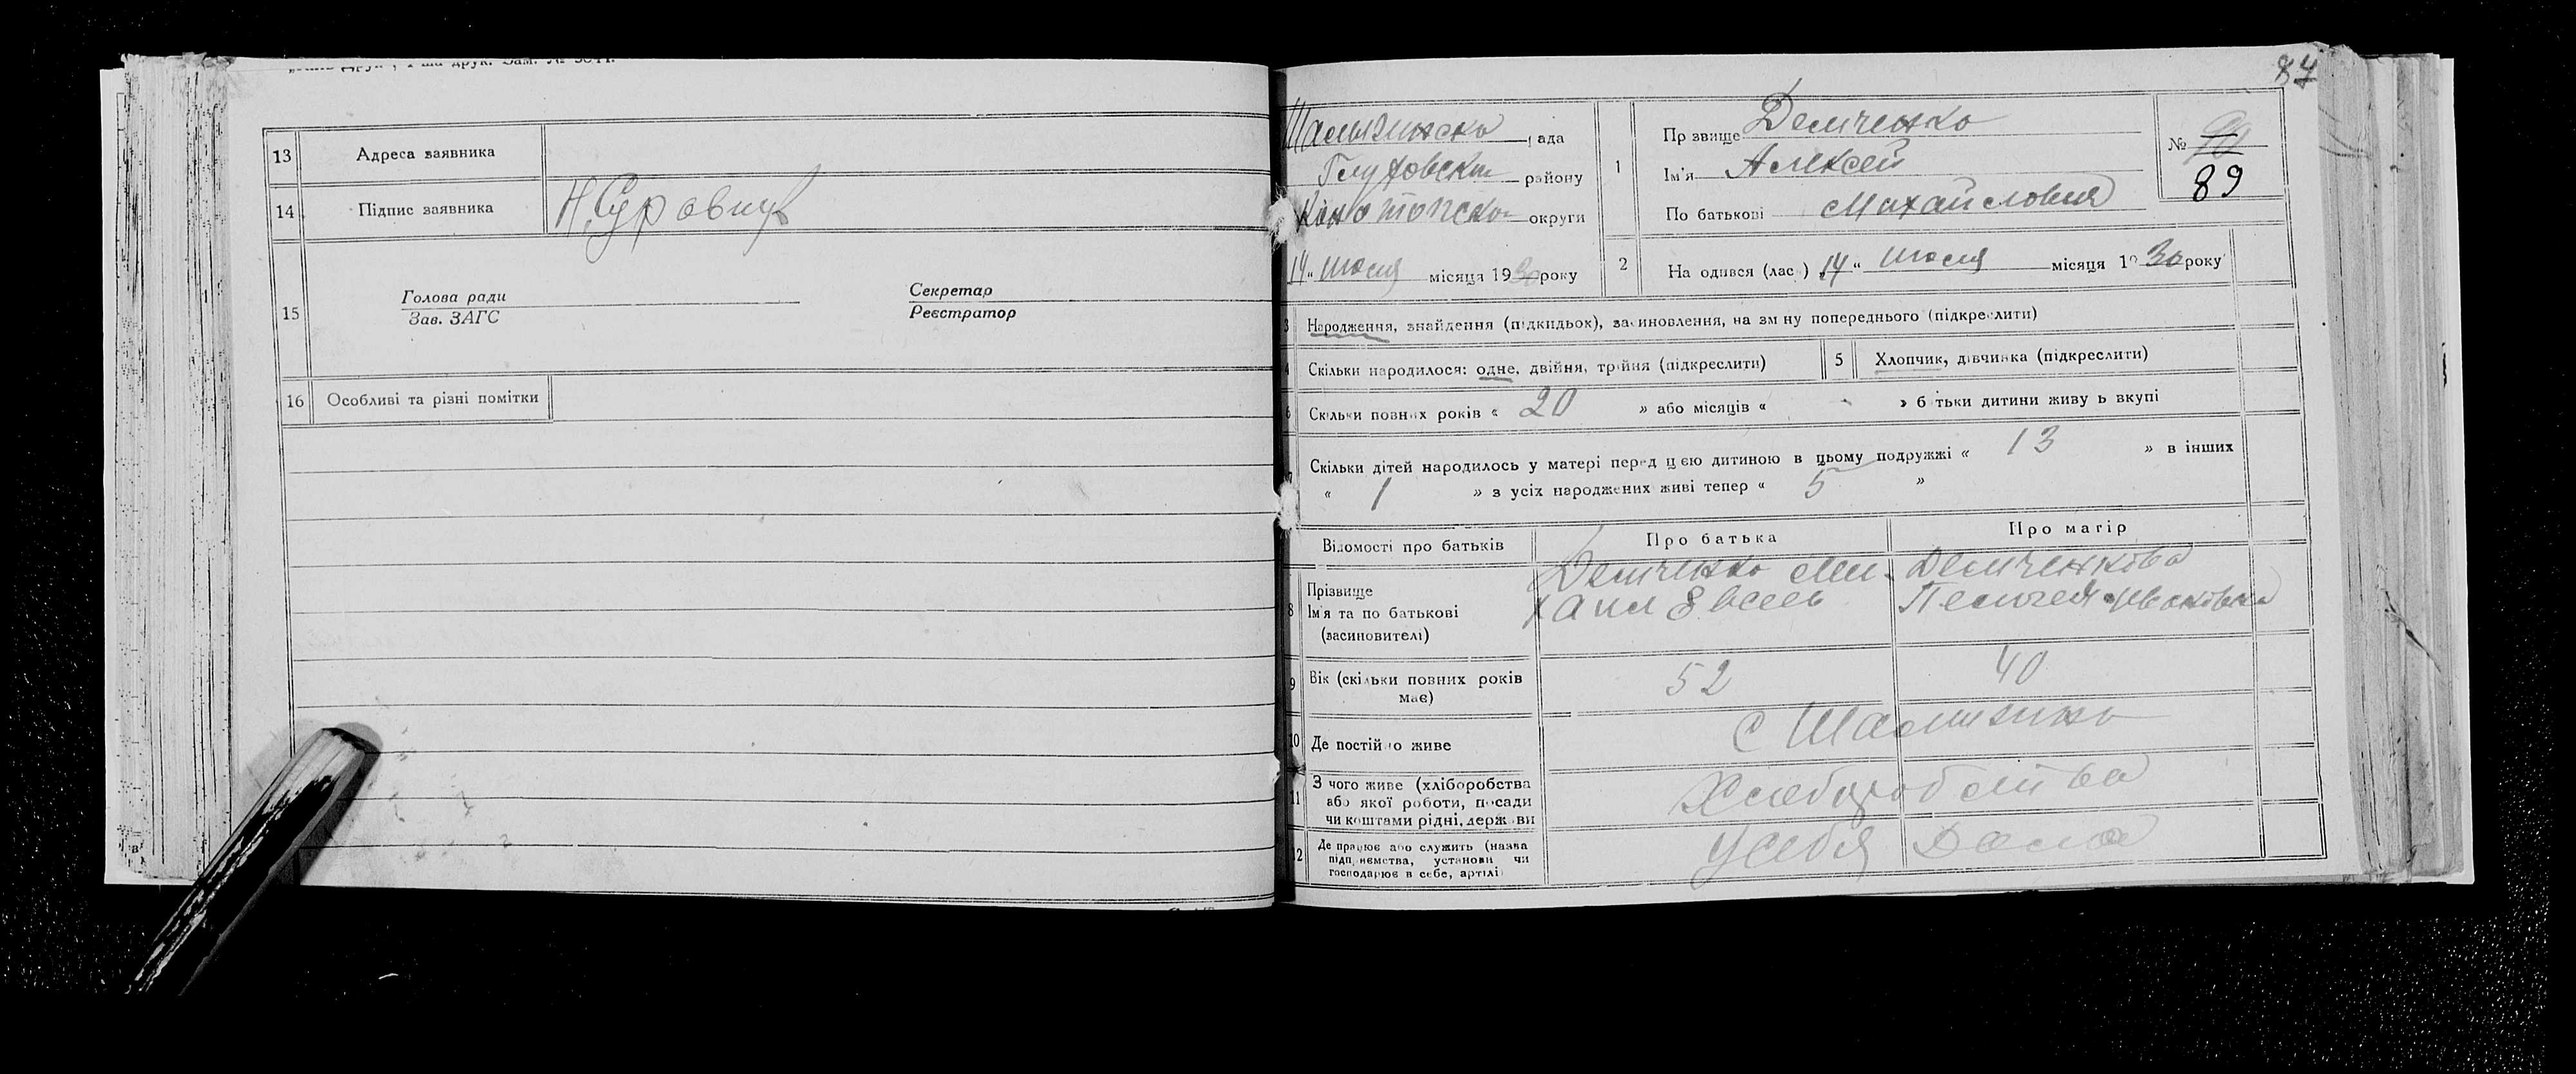 13 Адреса заявника
14 Підпис заявника Н. Суровцув
15 Голова ради Секретар
Зав. ЗАГС Реєстратор
16 Особливі та різні помітки
87
Шалыгинска рада
Глуховски району
Конотопско округи
14 " июля місяця 1930 року
1 Прізвище Демченко
Ім'я Алексей
По батькові Михайловия
№ 90
89
2 На одився (лас ) " 14 " июля місяця 1930 року
3 Народження, знайдення (підкидьок), засиновлення, на зміну попереднього (підкреслити)
4 Скільки народилося: одне, двійня, трійня (підкреслити) 5 Хлопчик, дівчинка (підкреслити)
6 Скільки повних років « 20 » або місяців « - » батьки дитини живуть вкупі
7 Скільки дітей народилось у матері перед цією дитиною в цьому подружжі « 13 » в інших
« 1 » з усіх народжених живі тепер « 5 »
Відомості про батьків Про батька Про матір
8 Прізвище Ім'я та по батькові (засиновителі)
Демченко Ми- Демченкова
хаил Пелагея Ивановна
9 Вік (скільки повних років має) 52 40
10 Де постійно живе с Шалыгино
11 З чого живе (хліборобства
або якої роботи, посади
чи коштами рідні, держави
Хлеборобства
12 Де працює або служить (назва
підприємства, установи чи
господарює в себе, артілі)
У себя Дома